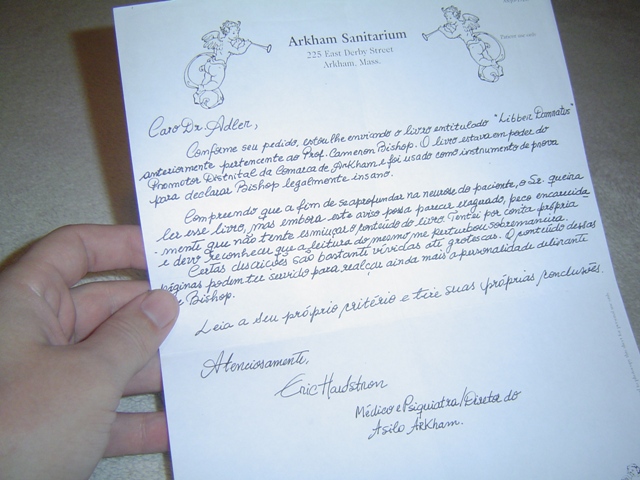 Arkham Sanitarium
225 East Derby Street
Arkham, Mass.
Caro Dr. Adler,
Conforme seu pedido, estou lhe enviando o livro entitulado "Libber Damnatus"
anteriormente pertencente ao Prof. Cameron Bishop. O livro estava em poder do
Promotor Distrital da Comarca de Arkham e foi usado como instrumento de prova
para declarar Bishop legalmente insano.
Compreendo que a fim de se aprofundar na neurose do paciente, o Sr. queira
ler esse livro, mas embora este aviso possa parecer exagerado, peço encarecida
-mente que não tente esmiuçar o conteúdo do livro. Tentei por conta própria
e devo reconhecer que a leitura do mesmo me perturbou sobremaneira.
Certas descrições são bastante vívidas até grotescas. O conteúdo dessas
páginas podem ter servido para realçar ainda mais a personalidade delirante
de Bishop.
Leia a seu próprio critério e tire suas próprias conclusões.
Atenciosamente,
Eric Hardstrom
Médico e Psiquiatra/Diretor do
Asilo Arkham.